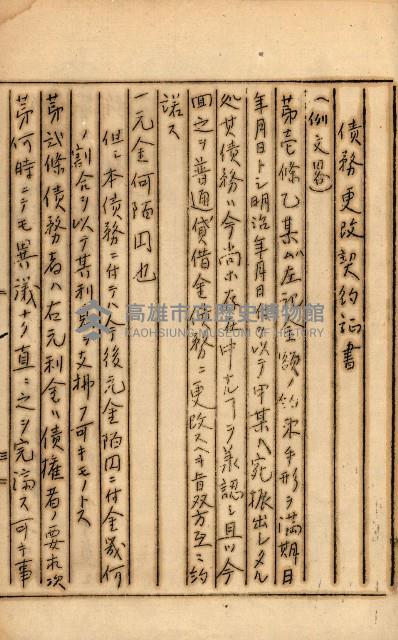 債務更改契約証書
(例文畧)
第壱條乙某ガ左記金額ノ約束手形ヲ満期日
年月日トシ明治年月日ヲ以テ甲某ヘ宛振出シタル
処其債務ハ今尚ホ存在中ナルヿヲ承認シ且ツ今
回之ヲ普通貸借金債務ニ更改スヘキ旨双方互ニ約
諾ス
一元金何陌円也
但シ本債務ニ付テハ今後元金陌円ニ付金幾何
ノ割合ヲ以テ其利 支拂フ可キモノトス
第弐條債務者ハ右元利金ハ債権者ノ要求次
第何時ニテモ異議ナク直ニ之ヲ完済ス可キ事
高雄市立歷史博物館
KAOHSIUNG MUSEUM OF HISTORY